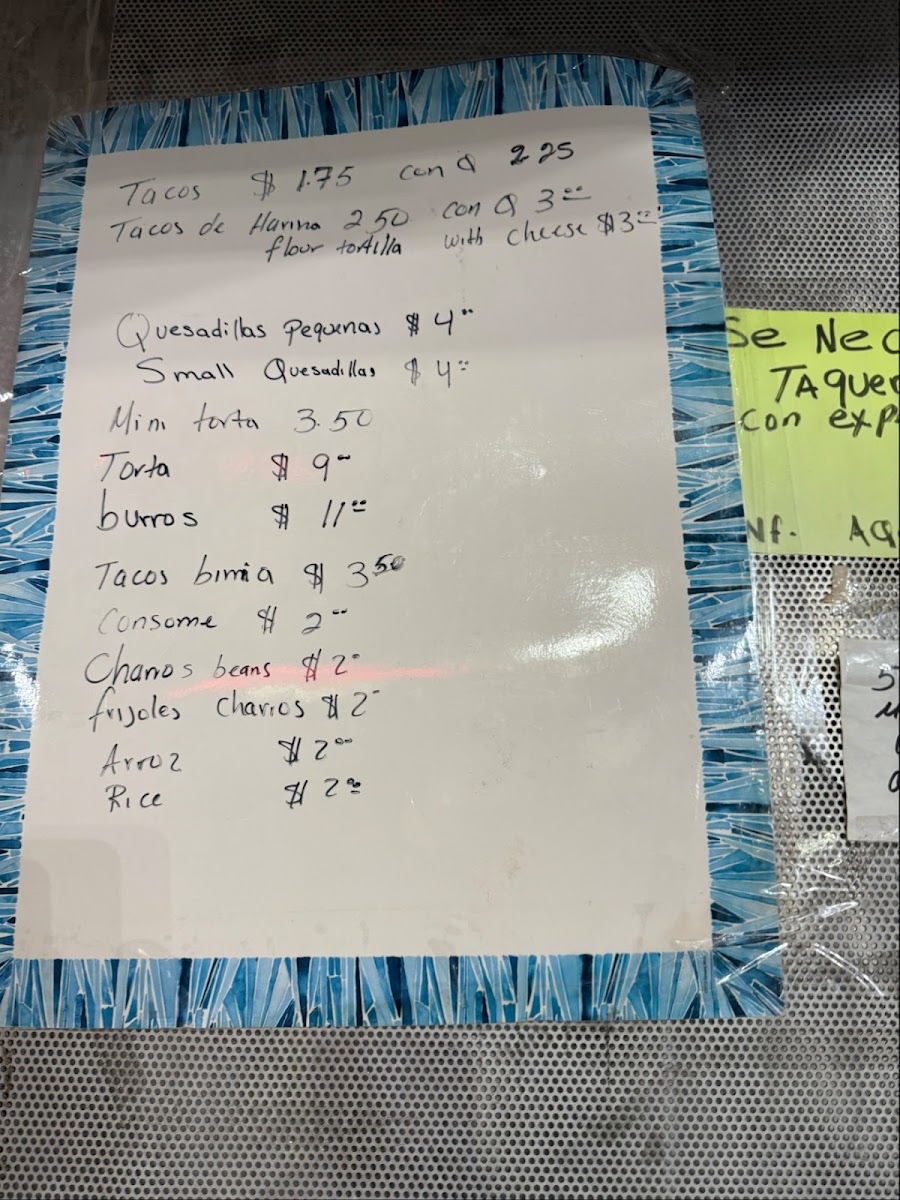 Tacos $ 1.75 con Q 2.25
Tacos de Harina 2.50 con Q 3.00
flour tortilla with cheese $3.00
Quesadillas pequenas $ 4.00
Small Quesadillas $ 4.00
Mini torta 3.50
Torta $ 9.00
burros $ 11.00
Tacos birria $ 3.50
Consome $ 2.00
Charros beans $ 2
frijoles Charros $ 2
Arroz $ 2.00
Rice $ 2.00
Se Nec
TAquer
con exp
Nf. AQ
5